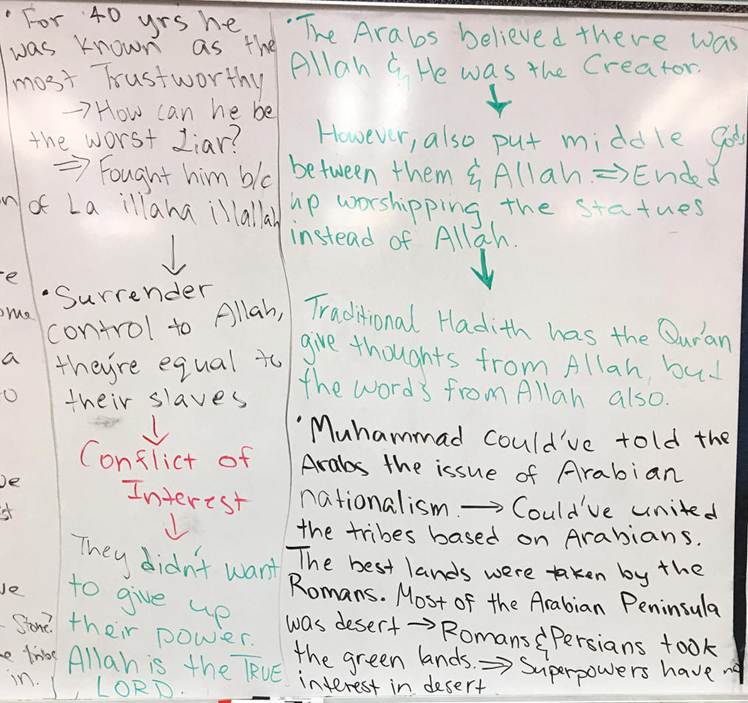 n
e
ome
a
o
ve
st
ve
Stone?
e tribe
in.
• For 40 yrs he
was known as the
most Trustworthy
→ How can he be
the worst Liar?
⇒ Fought him b/c
of La illaha illallah
↓
• Surrender
control to Allah,
they're equal to
their slaves
↓
Conflict of
Interest
↓
They didn't want
to give up
their power.
Allah is the TRUE
LORD.
• The Arabs believed there was
Allah & He was the Creator.
↓
However, also put middle Gods
between them & Allah. ⇒ Ended
up worshipping the statues
instead of Allah.
↓
Traditional Hadith has the Qur'an
give thoughts from Allah, but
the words from Allah also.
• Muhammad could've told the
Arabs the issue of Arabian
nationalism. → Could've united
the tribes based on Arabians.
The best lands were taken by the
Romans. Most of the Arabian Peninsula
was desert → Romans & Persians took
the green lands. ⇒ Superpowers have no
interest in desert.